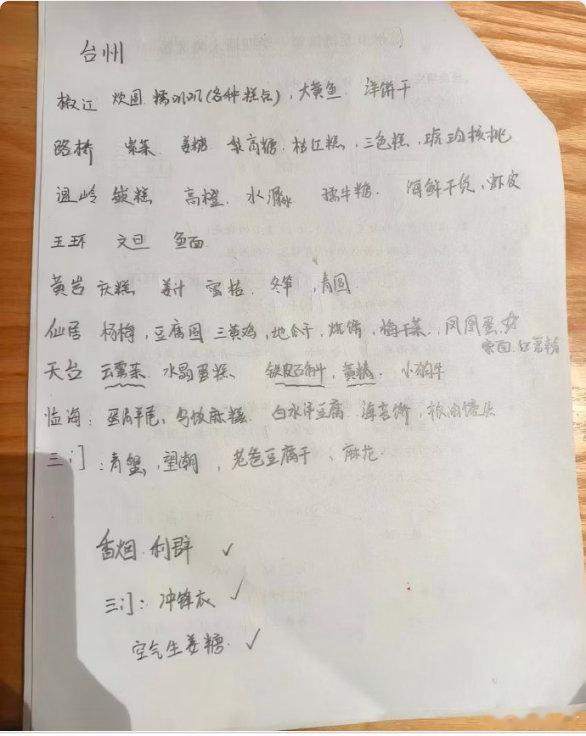 台州
椒江 炊圆 糯叽叽(各种糕点)，大黄鱼 洋饼干
路桥 紫菜 姜糖 梨膏糖，枝江糕，三色糕，琥珀核桃
温岭 嵌糕 高橙，水潺 孺牛糖 海鲜干货，虾皮
玉环 文旦 鱼面
黄岩 灰糕 姜汁 蜜桔 冬笋，青圆
仙居 杨梅，豆腐圆 三黄鸡，地仓干，烧饼，梅干菜，凤凰蛋，
索面，红薯粉
天台 云雾茶 水晶蛋糕 铁皮石斛，黄精，小狗牛
临海：蛋清羊尾，乌饭麻糍 白水洋豆腐 海苔饼，
三门：青蟹，望潮，老爸豆腐干、麻花
香烟 利群 ✓
三门：冲锋衣 ✓
空气生姜糖 ✓